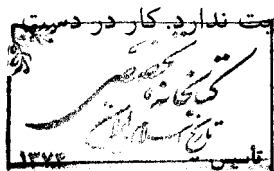 یت ندارد. کار در دست
کتابخانه تخصصی
تاریخ اسلام و ایران
تأسیس ۱۳۷۴